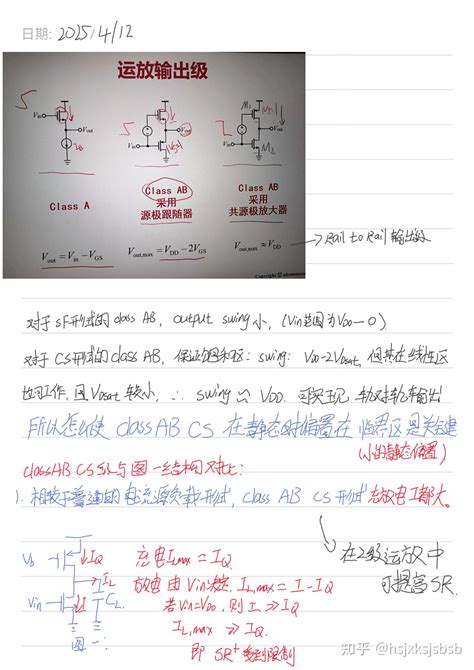 日期: 2025/4/12
运放输出级
Vin
Vout
Vin
Vout
Vin
Vout
M1
M2
Class A
Class AB
采用
源极跟随器
Class AB
采用
共源极放大器
Vout = Vin − VGS
Vout,max = VDD − 2VGS
Vout,max ≈ VDD
→ Rail to Rail 输出级
对于SF形式的class AB, output swing小, (Vin范围为VDD—0)
对于CS形式的class AB, 保证饱和区: swing: VDD-2Vdsat, 但其在线性区
也可工作, 因Vdsat较小, ∴ swing ≈ VDD. 可实现 轨对轨输出
所以怎么使 class AB CS 在静态时偏置在 临界区是关键
(小的静态偏置)
class AB CS级与图一结构对比:
1. 相较于普通的电流源负载形式, class AB CS形式充放电I都大。
在2级运放中
可提高SR.
Vb
IQ
IL
Vin
I
CL
图一:
充电ILmax = IQ
放电由Vin决定. IL,max = I − IQ
若Vin=VDD, 则I >> IQ
IL,max >> IQ.
即 SR+ 受到限制
知乎 @hsjxksjsbsb